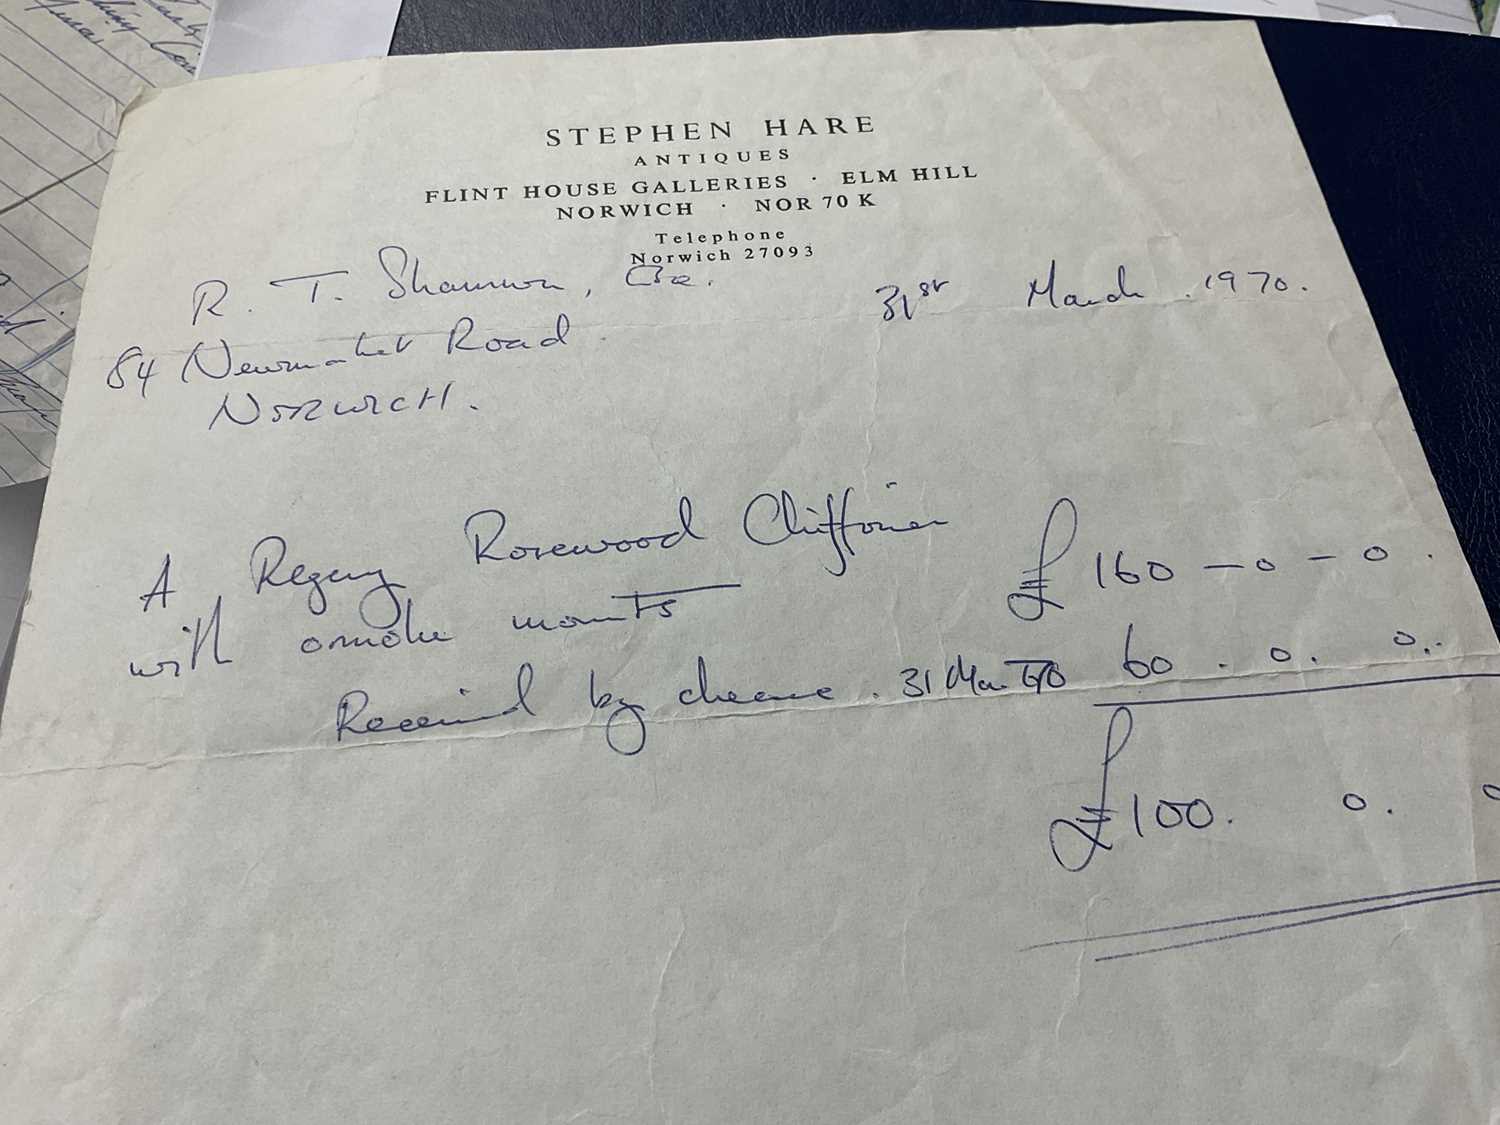 STEPHEN HARE
ANTIQUES
FLINT HOUSE GALLERIES · ELM HILL
NORWICH · NOR 70 K
Telephone
Norwich 27093
R. T. Shannon, Esq.
31st March 1970.
84 Newmarket Road
NORWICH.
A Regency Rosewood Chiffonier
with ormolu mounts £160 - 0 - 0.
Received by cheque. 31 Mar 1970 60. 0. 0.
£100. 0. 0